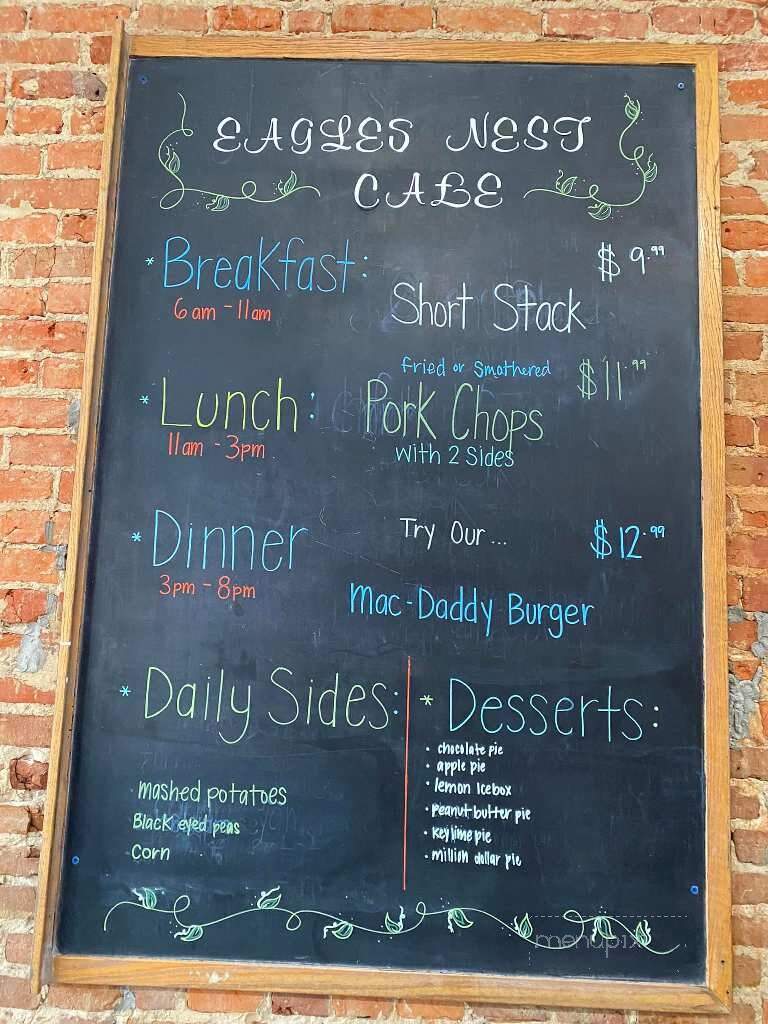 EAGLES NEST
CAFE
* Breakfast:
6am - 11am
$9.99
Short Stack
* Lunch:
11am - 3pm
fried or Smothered
$11.99
Pork Chops
with 2 Sides
* Dinner
3pm - 8pm
Try Our...
$12.99
Mac-Daddy Burger
* Daily Sides:
mashed potatoes
Black eyed peas
Corn
* Desserts:
• chocolate pie
• apple pie
• lemon Icebox
• peanut butter pie
• key lime pie
• million dollar pie
menupix